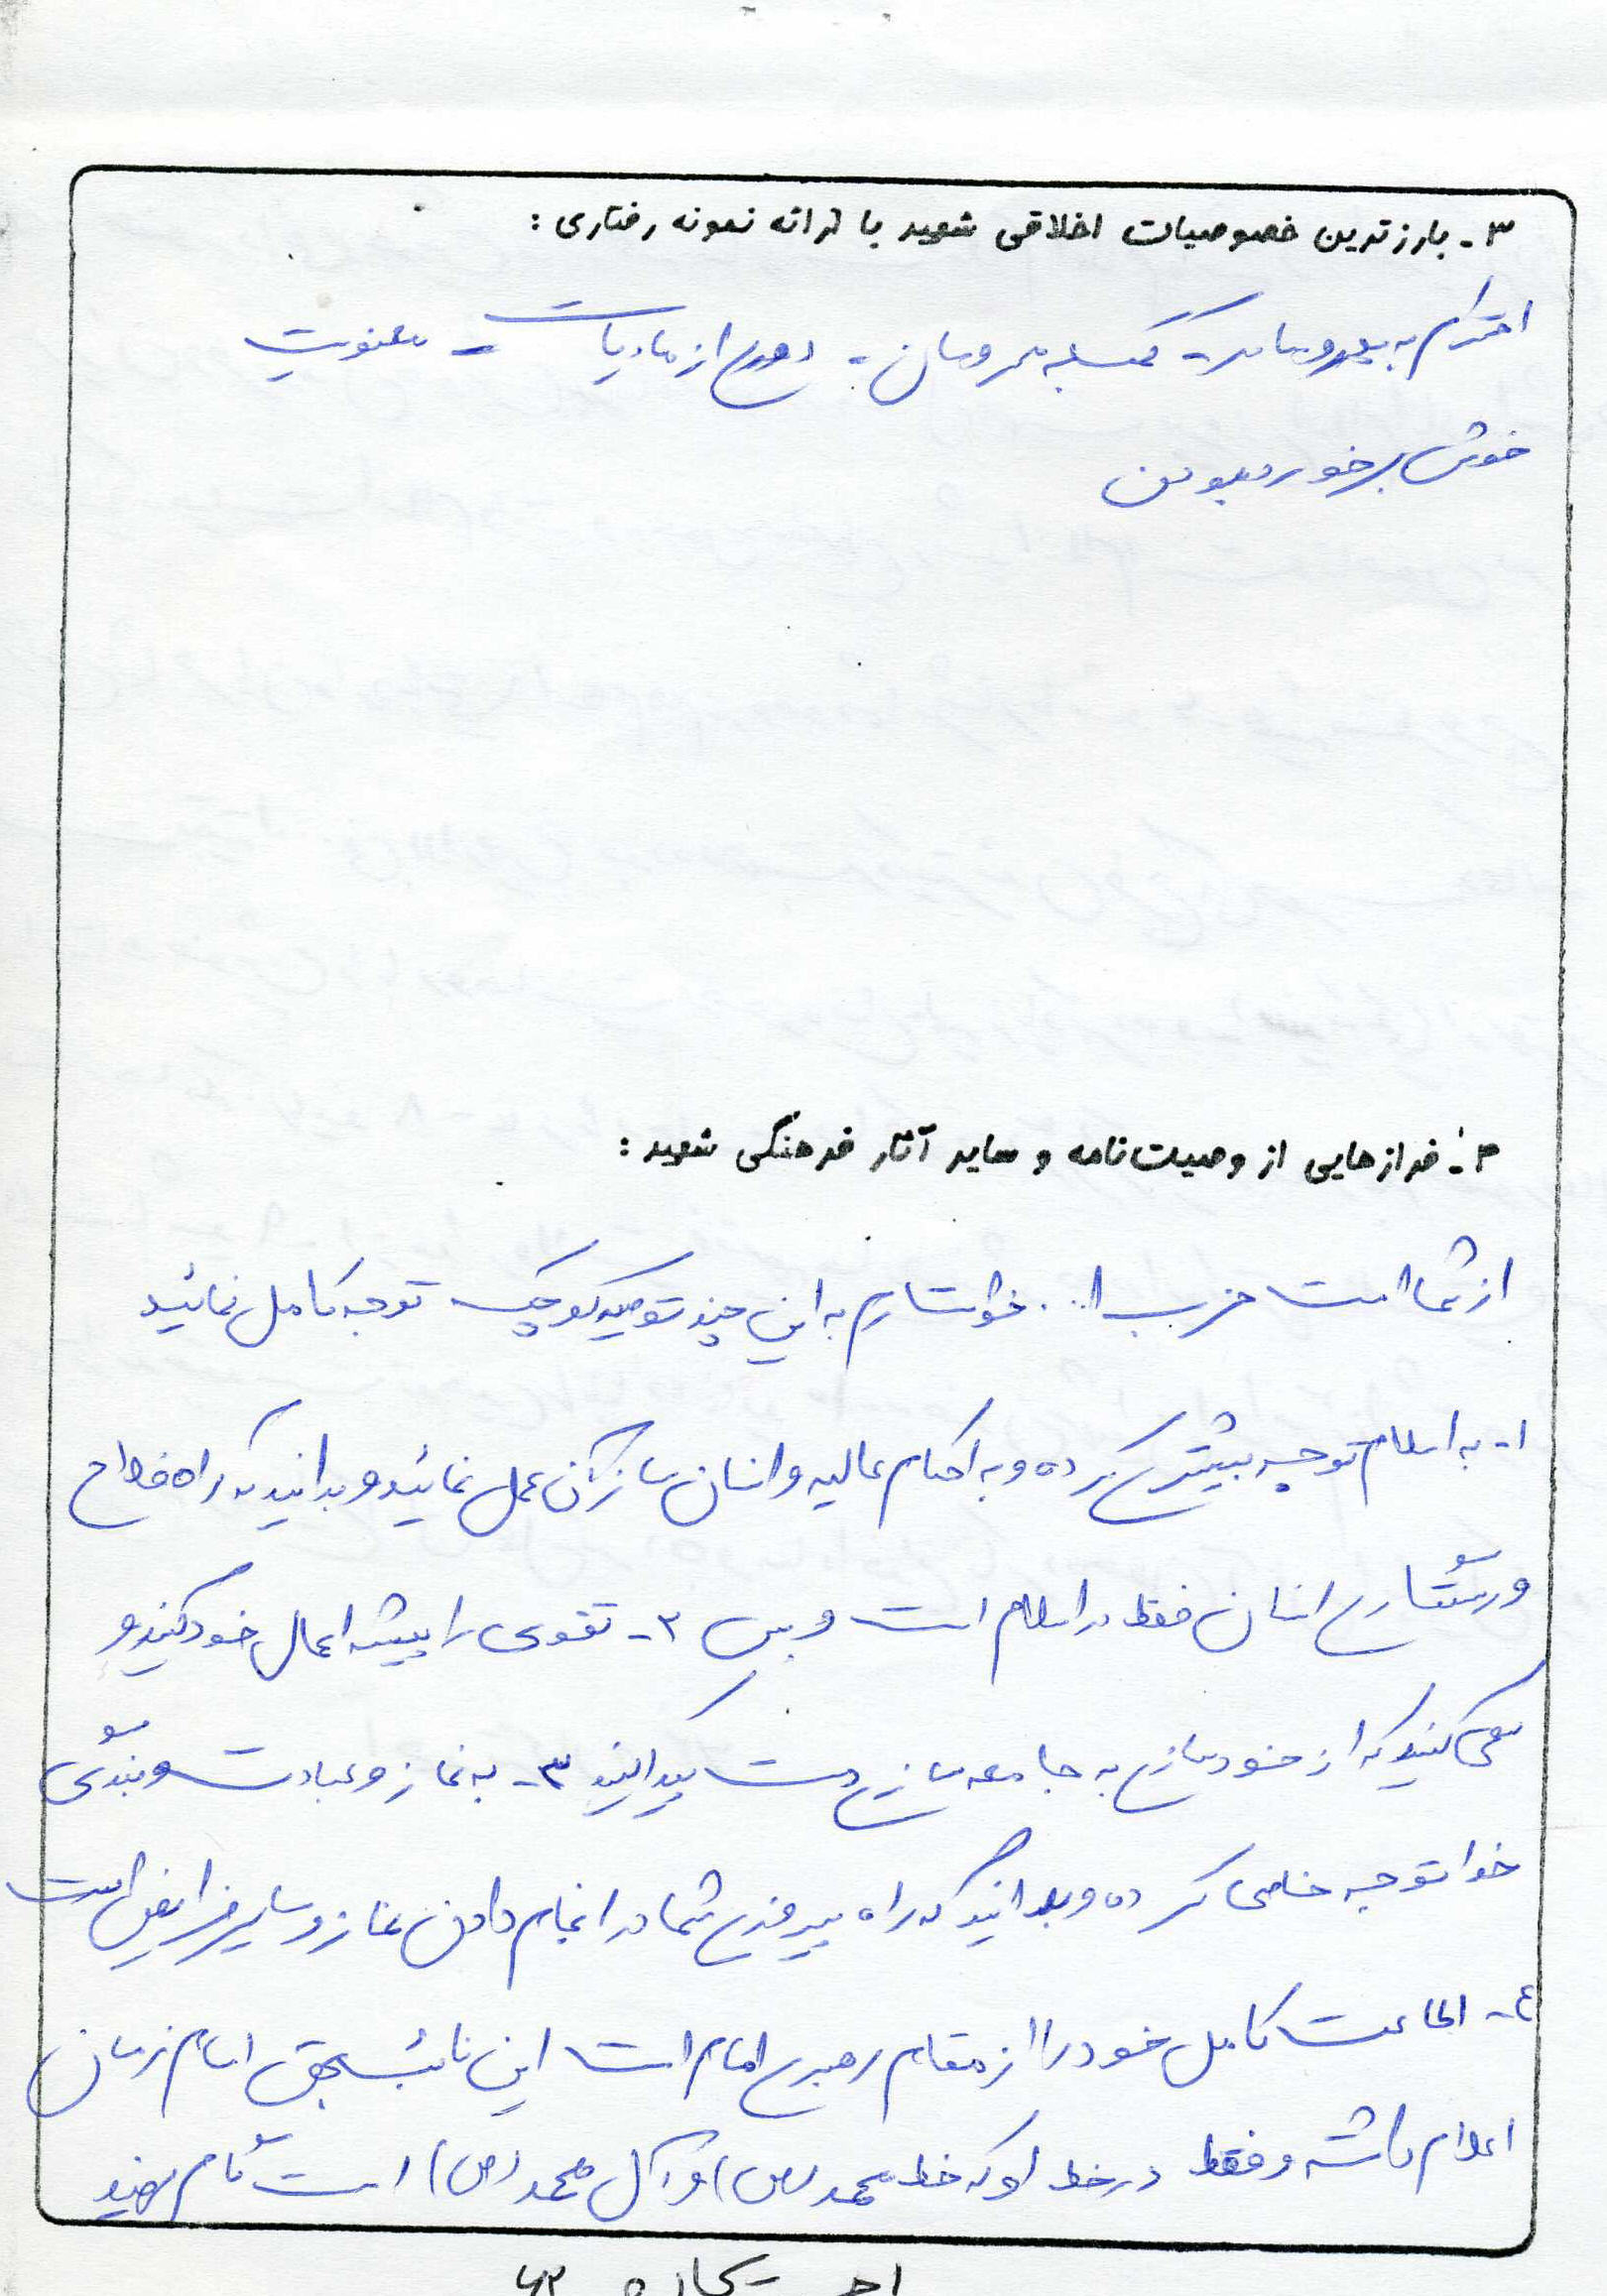 ۳- بارزترین خصوصیات اخلاقی شهید با ارائه نمونه رفتاری :
احترام به پدر و مادر - کمک به محرومان - دوری از مادیات - معنویت
خوش برخورد بودن
۴- فرازهایی از وصیت‌نامه و سایر آثار فرهنگی شهید :
از شما امت حزب ا... خواستارم به این چند توصیه کوچک توجه کامل نمائید
۱- به اسلام توجه بیشتری کرده و به احکام عالیه و انسان ساز آن عمل نمائید و بدانید که راه فلاح
و رستگاری انسان فقط در اسلام است و بس ۲- تقوی را پیشه اعمال خود کنید و
سعی کنید که از خودسازی به جامعه سازی دست پیدا کنید ۳- به نماز و عبادت و بندگی
خدا توجه خاصی کرده و بدانید که راه پیروزی شما در انجام دادن نماز و سایر فرایض است
٤- اطاعت کامل خود را از مقام رهبری امام امت این نائب بحق امام زمان
اعلام داشته و فقط در خط او که خط محمد (ص) و آل محمد (ص) است گام نهید